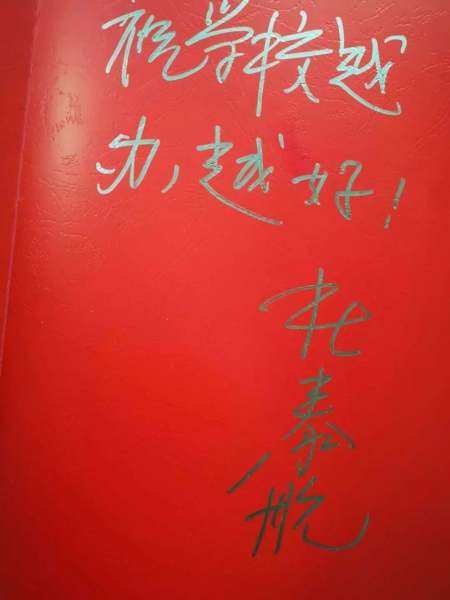 祝学校越
办,越好!
杜泰航